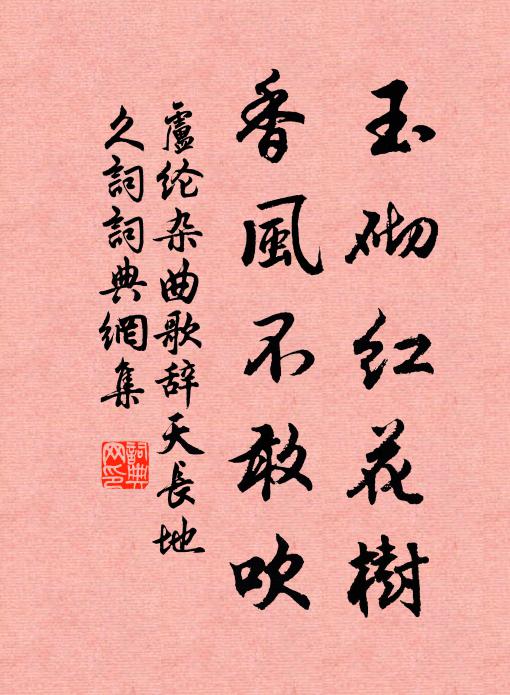 玉砌红花樹
香風不敢吹
盧纶杂曲歌辞天長地
久詞詞典網集
詞典网印